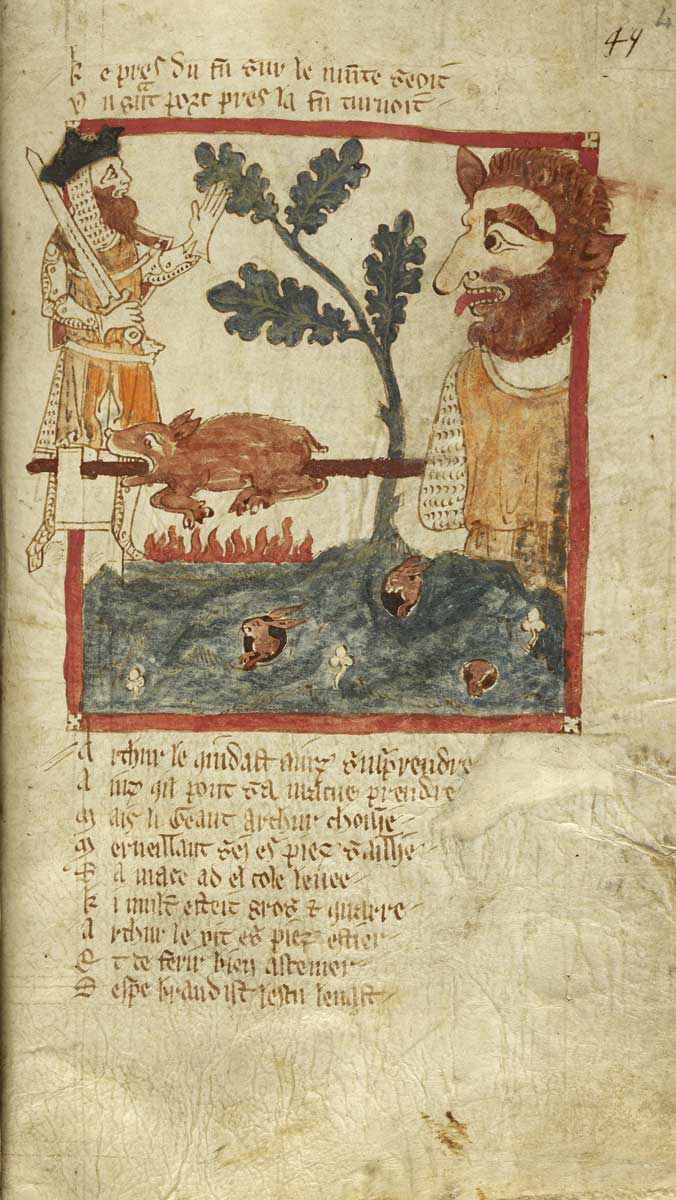 49
k e pres du fu sur le munte seoit
U n grant porc pres la fu turnoit
A rthur le quidast auiz surprendre
A inz qil pout sa macue prendre
M ais li Geant arthur choisist
M erueillant sei es piez saillist
S a mace ad el cole leuee
k i mult esteit gros & quarre
A rthur le vit es piez ester
E t de ferir bien astemer
S espe brandist lescu leuast